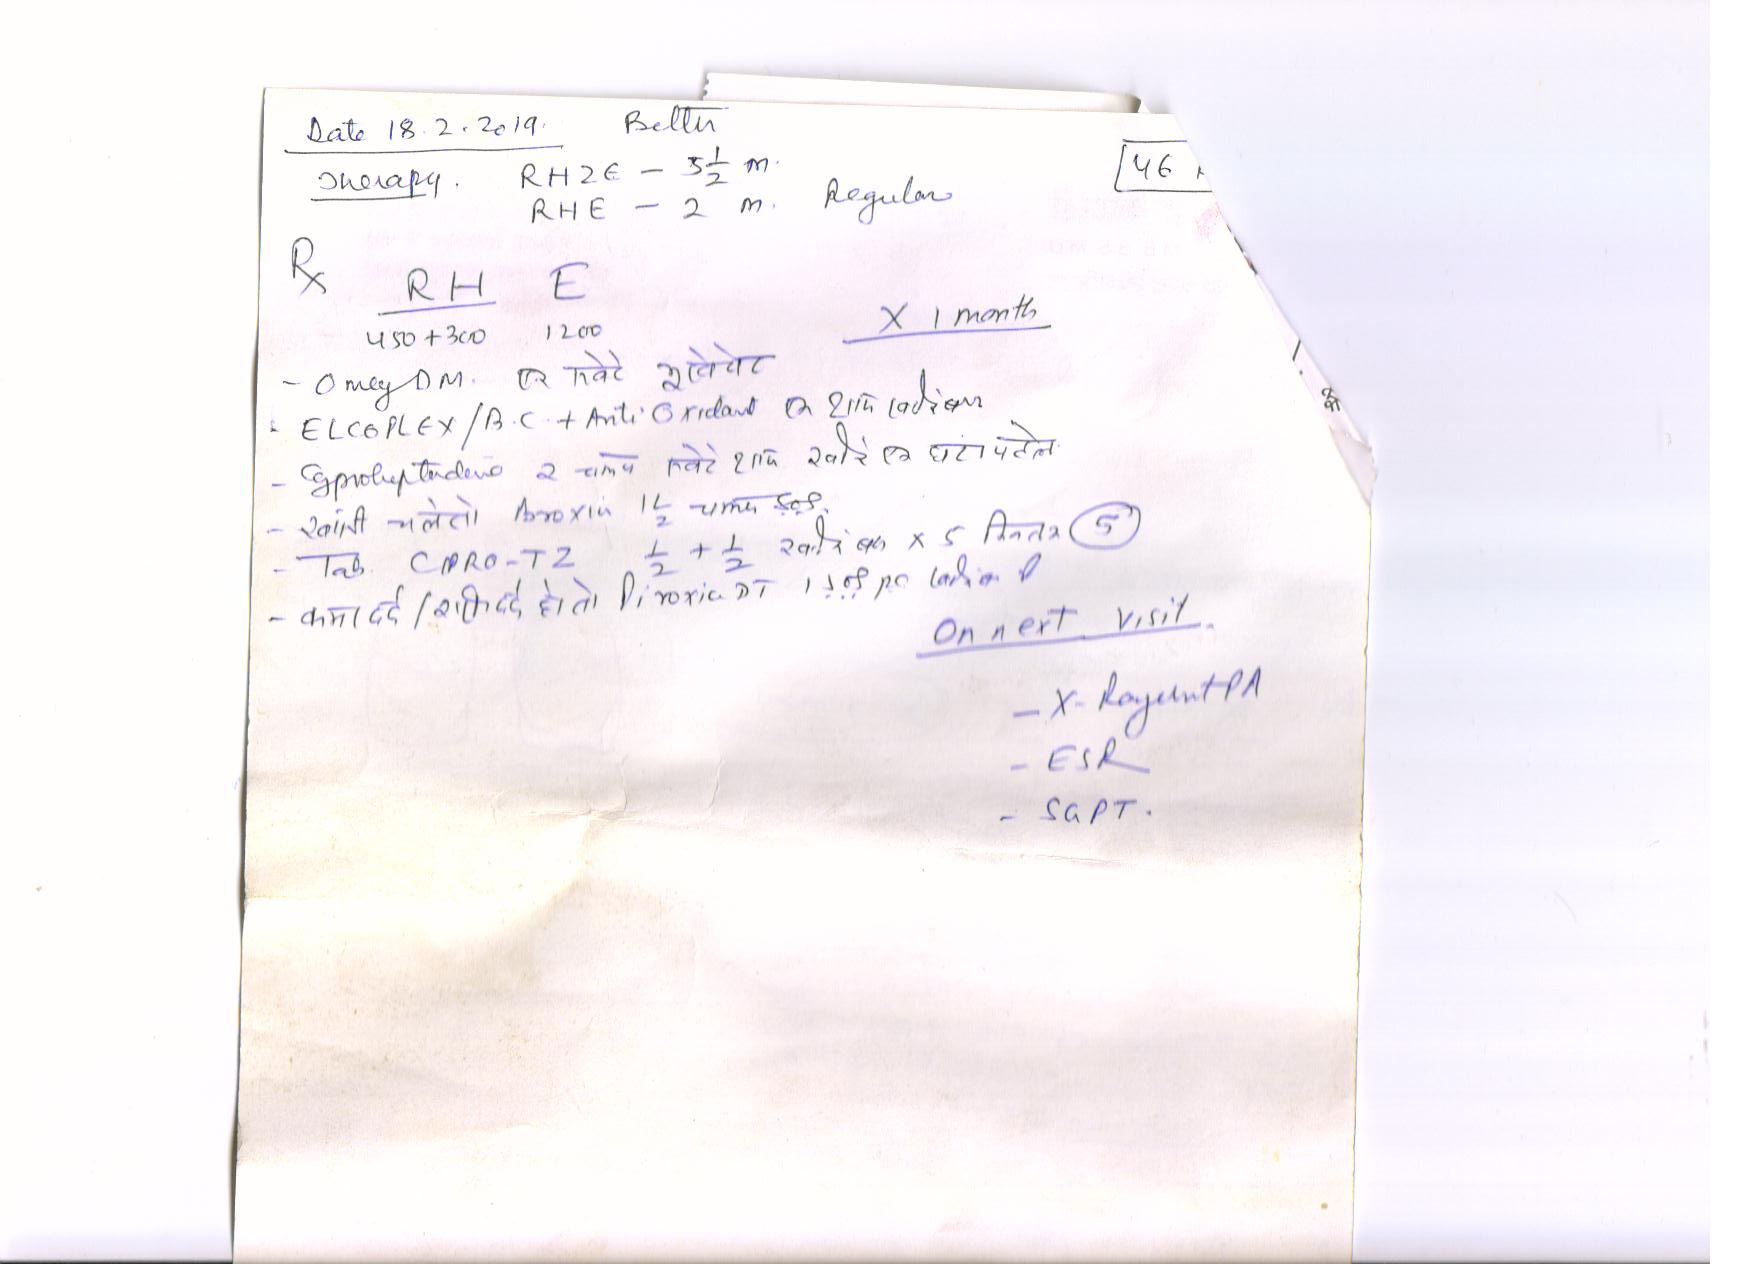 Date 18.2.2019. Better
[46
Therapy. RHZE - 5½ m.
RHE - 2 m. Regular
Rx
RH E
450+300 1200
X 1 month
- Omez DM. एक सवेरे भूखे पेट
- ELCOPLEX / B.C. + Anti Oxidant एक शाम
- Cyproheptadine २ चम्मच सवेरे शाम खाने एक घंटा पहले
- खांसी चले तो Broxin 1½ चम्मच SOS.
- Tab. CIPRO-TZ ½ + ½ x 5 दिन तक (5)
- दर्द / दर्द हो तो Piroxic DT 1 SOS
On next visit.
- X-Ray chest PA
- ESR
- SGPT.
के